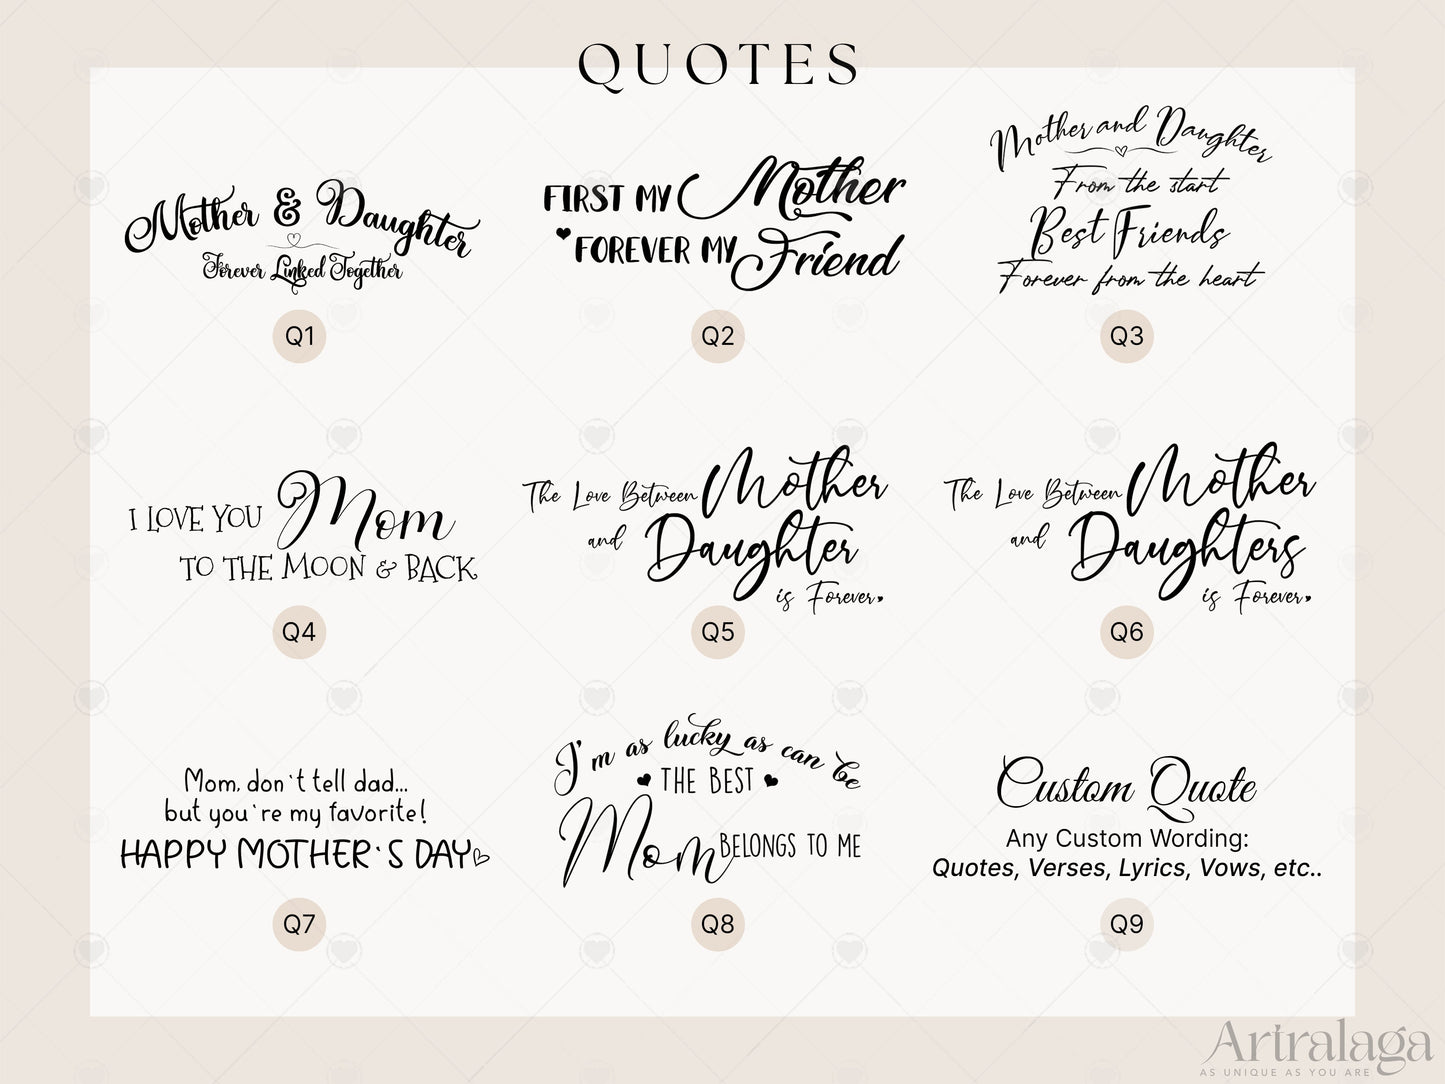 QUOTES
Mother & Daughter
Forever Linked Together
Q1
FIRST MY Mother
FOREVER MY Friend
Q2
Mother and Daughter
From the start
Best Friends
Forever from the heart
Q3
I LOVE YOU Mom
TO THE MOON & BACK
Q4
The Love Between Mother
and Daughter
is Forever
Q5
The Love Between Mother
and Daughters
is Forever
Q6
Mom, don't tell dad...
but you're my favorite!
HAPPY MOTHER'S DAY
Q7
I'm as lucky as can be
THE BEST
Mom BELONGS TO ME
Q8
Custom Quote
Any Custom Wording:
Quotes, Verses, Lyrics, Vows, etc..
Q9
Artralaga
AS UNIQUE AS YOU ARE